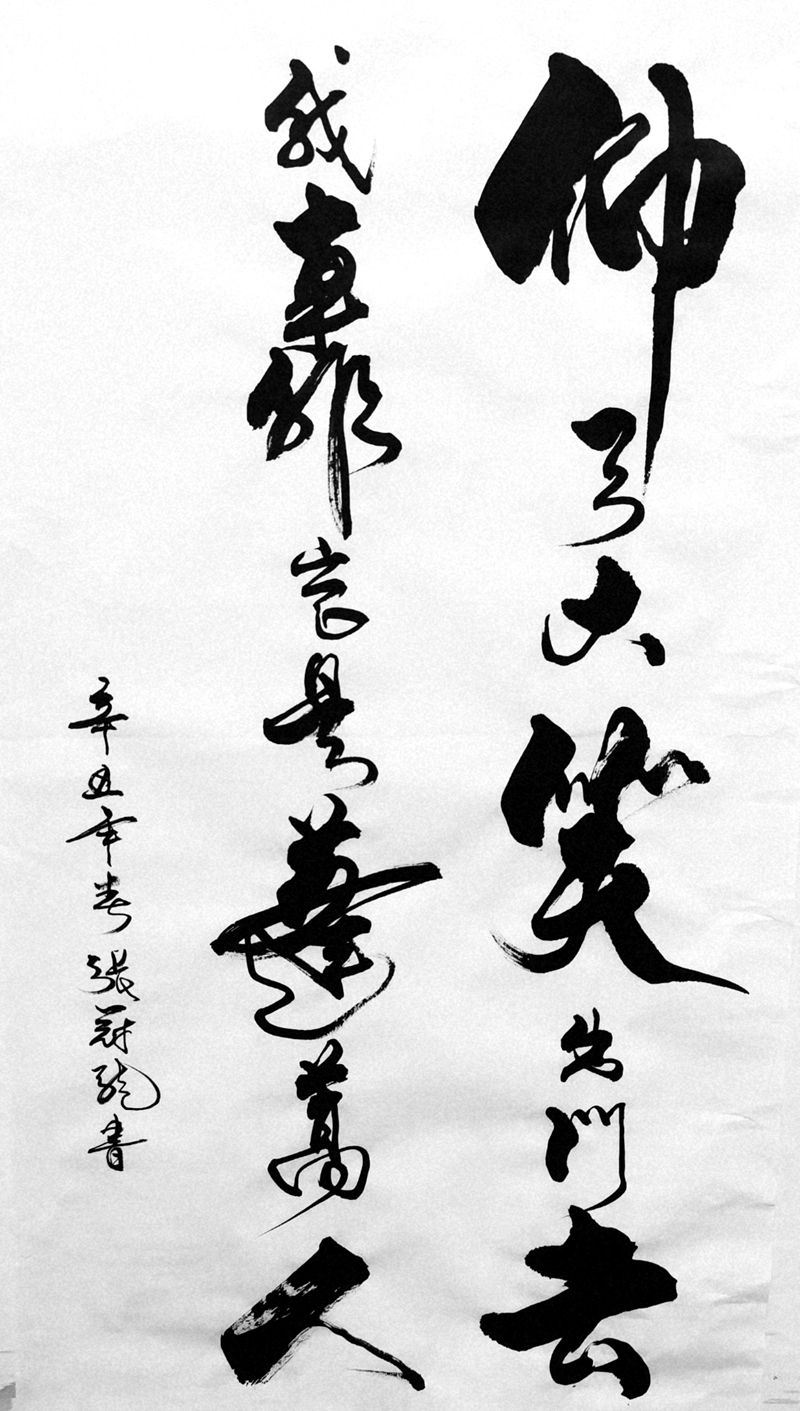 仰天大笑出門去
我輩豈是蓬蒿人
辛丑年春張冠龍書